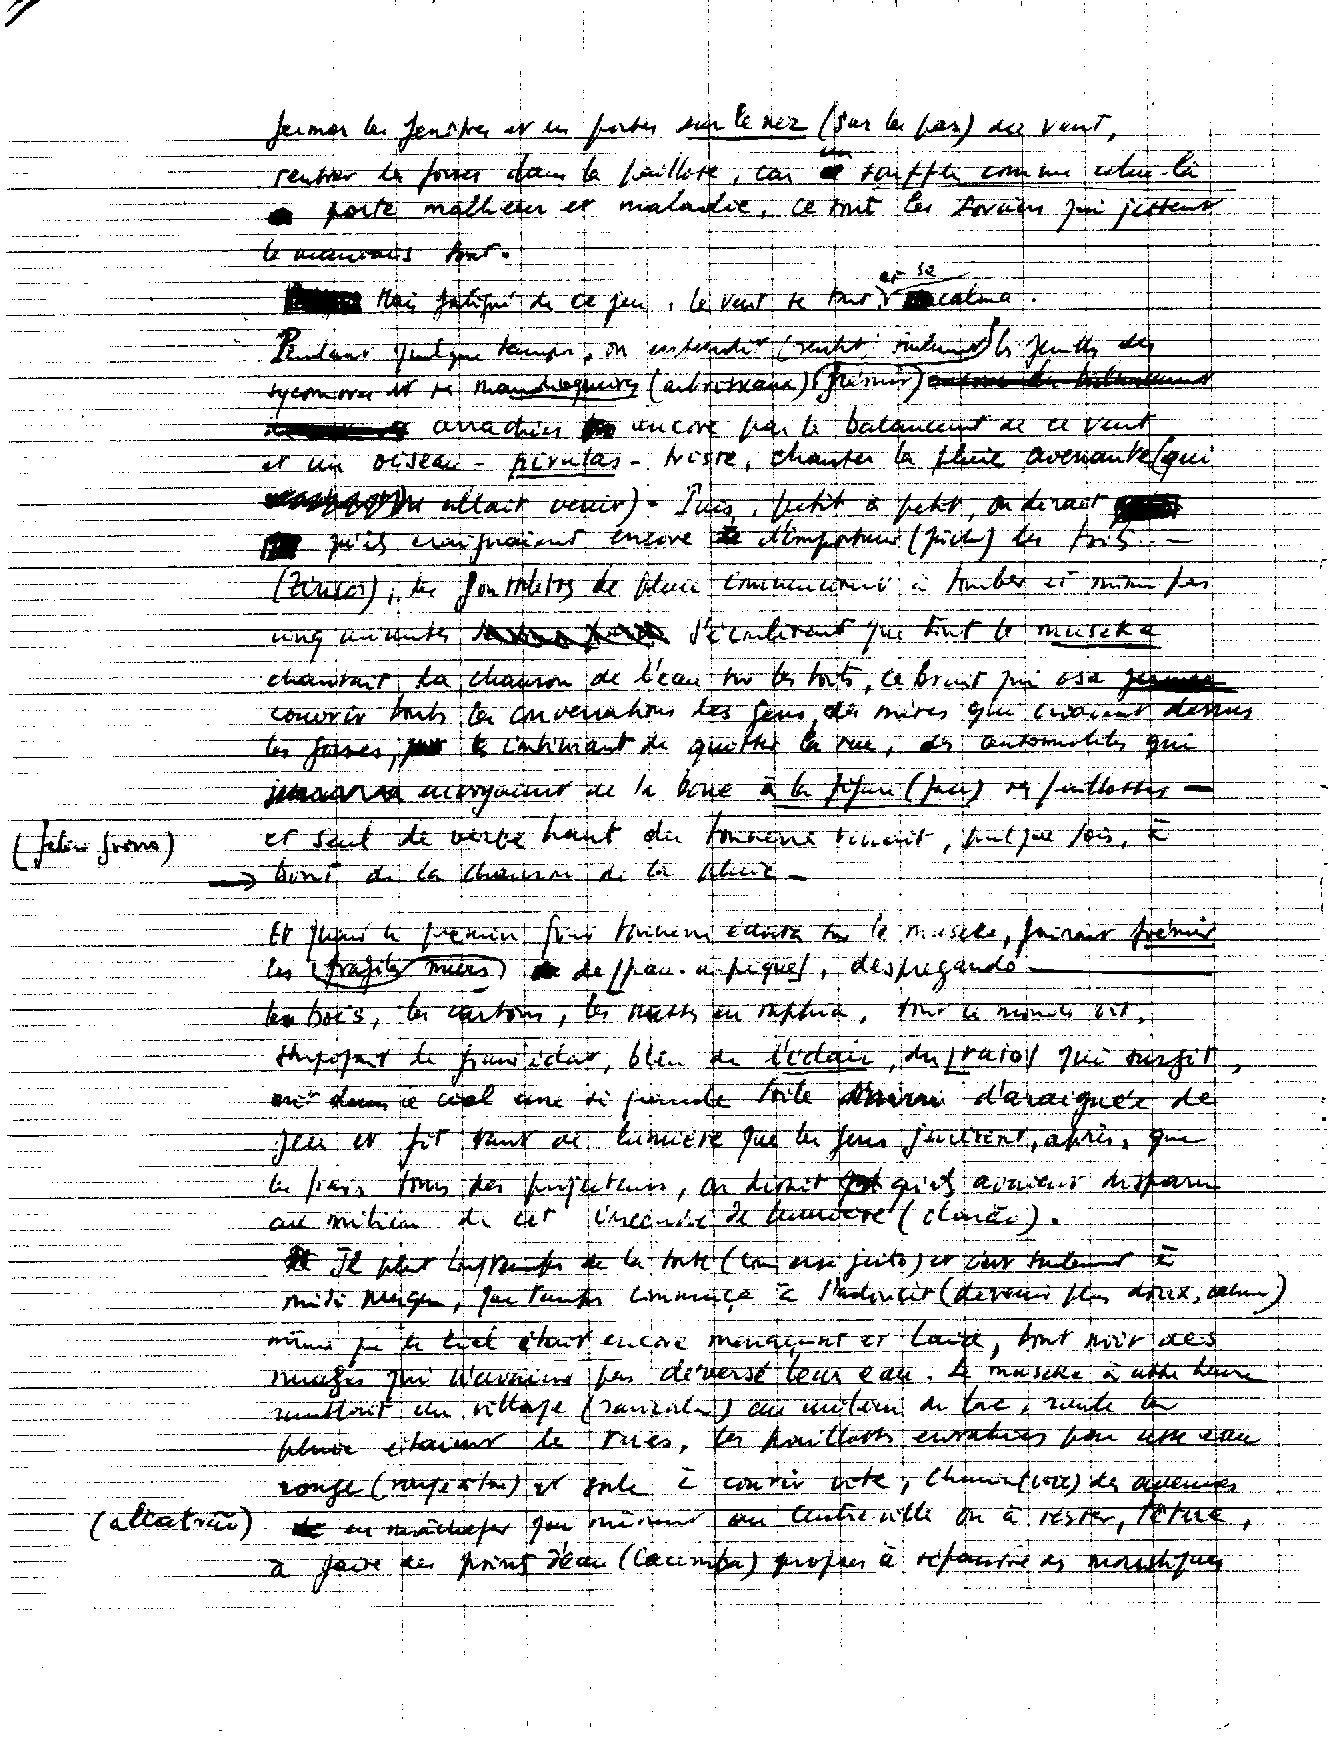 fermer les fenêtres et les portes sur le nez (sur les pas) du vent,
rentrer les portes dans la paillote, car souffle comme celui-là
porte malheur et maladie, ce sont les sorciers qui jettent
le mauvais sort.
Mais fatigué de ce jeu, le vent se tut et se calma.
Pendant quelque temps, on entendit seulement les feuilles des
sycomores et (arbrisseaux) (frémir)
arrachées encore par le balancement de ce vent
et un oiseau - pirulas - triste, chanter la pluie avenante (qui
allait venir). Puis, petit à petit, on dirait
qu'ils craignaient encore les toits
(zincos), les gouttelettes de pluie commencèrent à tomber et même pas
cinq minutes s'écoulèrent que tout le musseke
chantait la chanson de l'eau sur les toits, ce bruit qui osa
couvrir toutes les conversations des gens, des mères qui criaient dessus
les gosses, de quitter la rue, des automobiles qui
envoyaient de la boue à la figure (face) des paillottes -
et seul de verbe haut du tonnerre venait, quelque fois, à
(falar grosso)
bout de la chanson de la pluie -
Et quand le premier gros tonnerre éclata sur le musseke, faisant frémir
les (fragiles murs) de [pau-a-pique], despregando
les bois, les cartons, les nattes en raphia, tout le monde vit,
stupéfait le grand éclat, bleu de l'éclair, du [raio] qui surgit,
ciel une si grande toile d'araignée de
feu et fit tant de lumière que les gens jurèrent, après, que
les projecteurs, on dirait qu'ils avaient disparu
au milieu de cet incendie de lumière (clarão).
Il plut longtemps de la sorte (com esse jeito) et c'est seulement à
midi commença à s'adoucir (devenir plus doux, calme)
même que le ciel était encore menaçant et laid, tout noir des
nuages qui n'avaient pas déversé leur eau. Le musseke à cette heure
semblait un village (sanzala) au milieu du lac,
pluie étaient les rues, les paillottes envahies par une eau
rouge (rougeâtre) et sale à courir vite, chemin (voie) des avenues
(alcatrão)
en mâchefer qui mènent au centre ville ou à rester, têtue,
à faire des points d'eau (cacimba) propres à répandre des moustiques